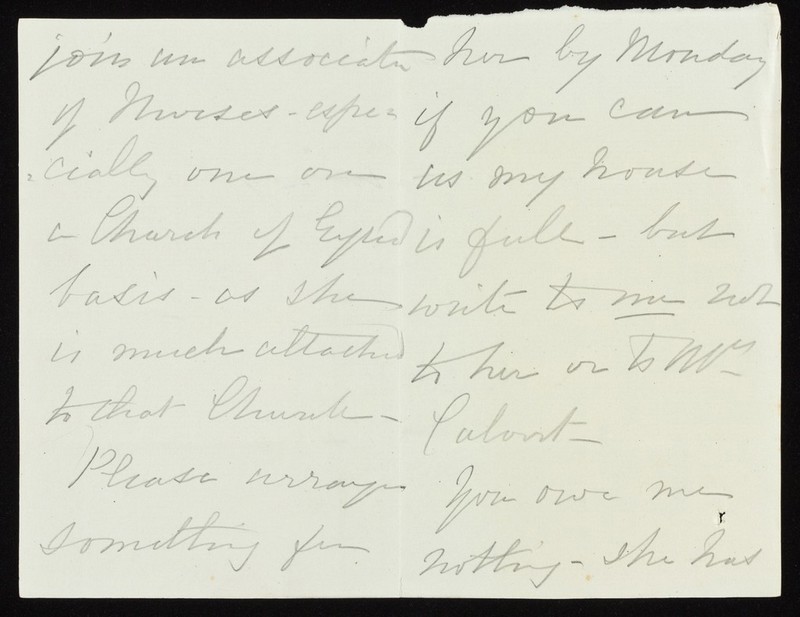 join an associatn
of Nurses - espe=
=cially one on
a Church of Engd
basis - as she
is much attached
to that Church -
Please arrange
something for
her by Monday
if you can
as my house
is full - but
write to me not
to her or to Mrs
Calvert -
You owe me
nothing - she has